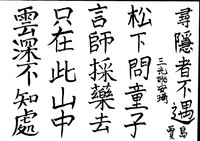 尋隱者不遇 賈島
松下問童子
言師採藥去
只在此山中
雲深不知處